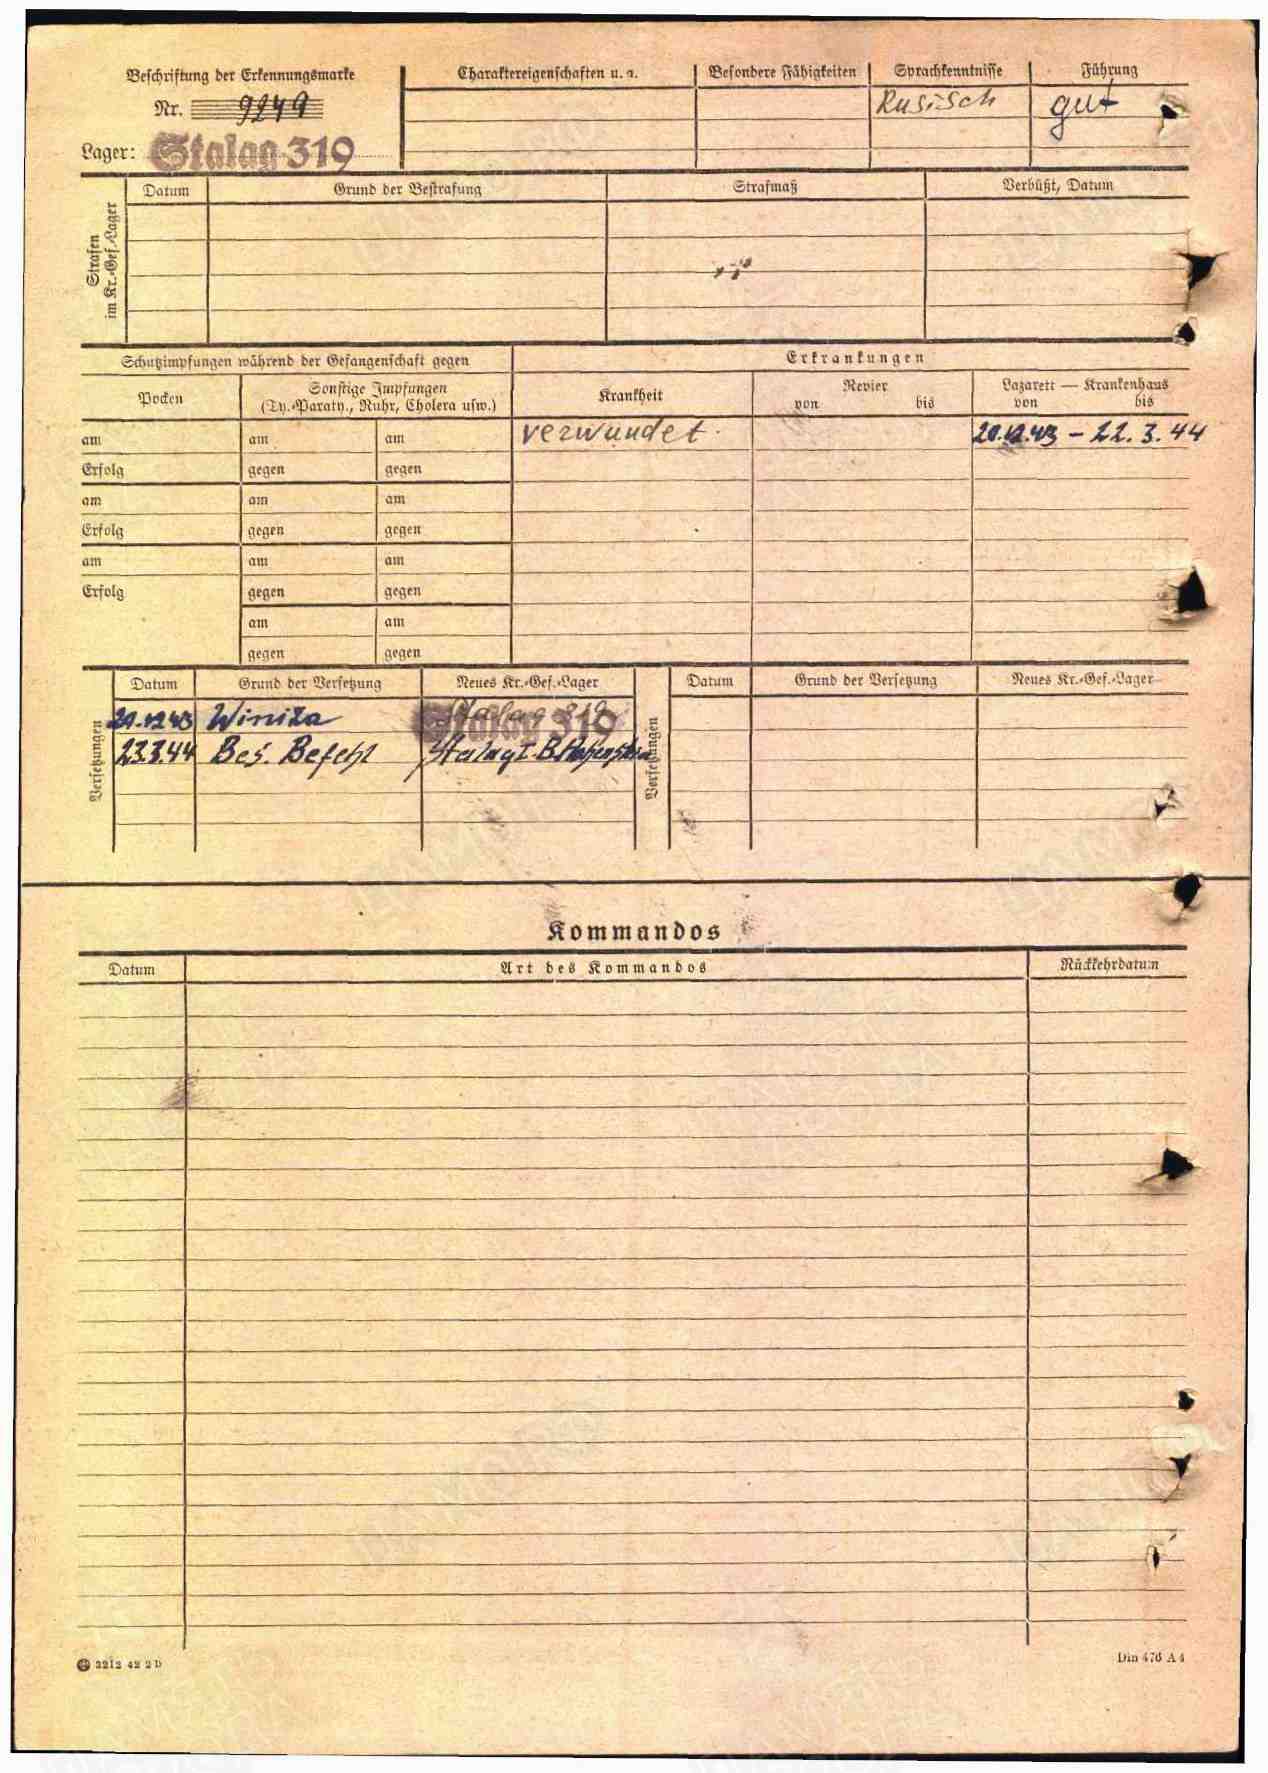 Beschriftung der Erkennungsmarke
Nr. 9249
Lager: Stalag 319
Charaktereigenschaften u. a. Besondere Fähigkeiten Sprachkenntnisse Führung
Rusisch gut
Strafen im Kr.-Gef.-Lager
Datum Grund der Bestrafung Strafmaß Verbüßt, Datum
Schutzimpfungen während der Gefangenschaft gegen Erkrankungen
Pocken Sonstige Impfungen Krankheit Revier Lazarett — Krankenhaus
(Ty.-Paraty., Ruhr, Cholera usw.) von bis von bis
am am am verwundet. 20.12.43 – 22.3.44
Erfolg gegen gegen
am am am
Erfolg gegen gegen
am am am
Erfolg gegen gegen
am am
gegen gegen
Versetzungen
Datum Grund der Versetzung Neues Kr.-Gef.-Lager
20.12.43 Winiza Stalag 319
23.3.44 Bes. Befehl Stalag I-B Hohenstein
Versetzungen
Datum Grund der Versetzung Neues Kr.-Gef.-Lager
Kommandos
Datum Art des Kommandos Rückkehrdatum
2212 42 2 D Din 476 A 4